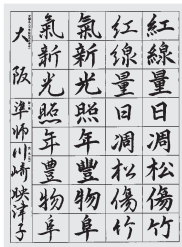 紅線量日凋松傷竹
紅線量日凋松傷竹
氣新光照年豐物阜
氣新光照年豊物阜
大阪 準師 川崎映津子